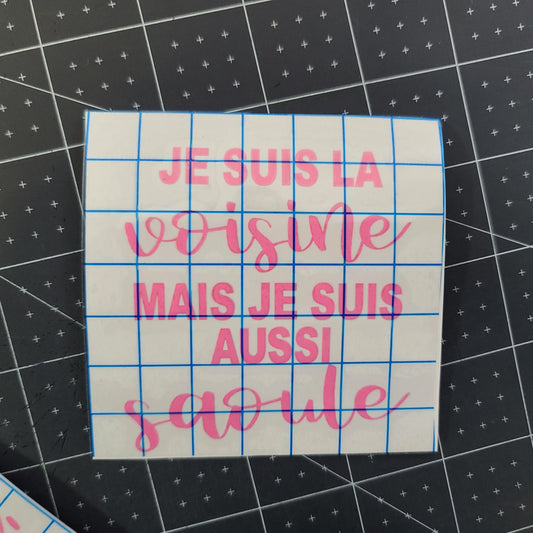 JE SUIS LA
voisine
MAIS JE SUIS
AUSSI
saoule